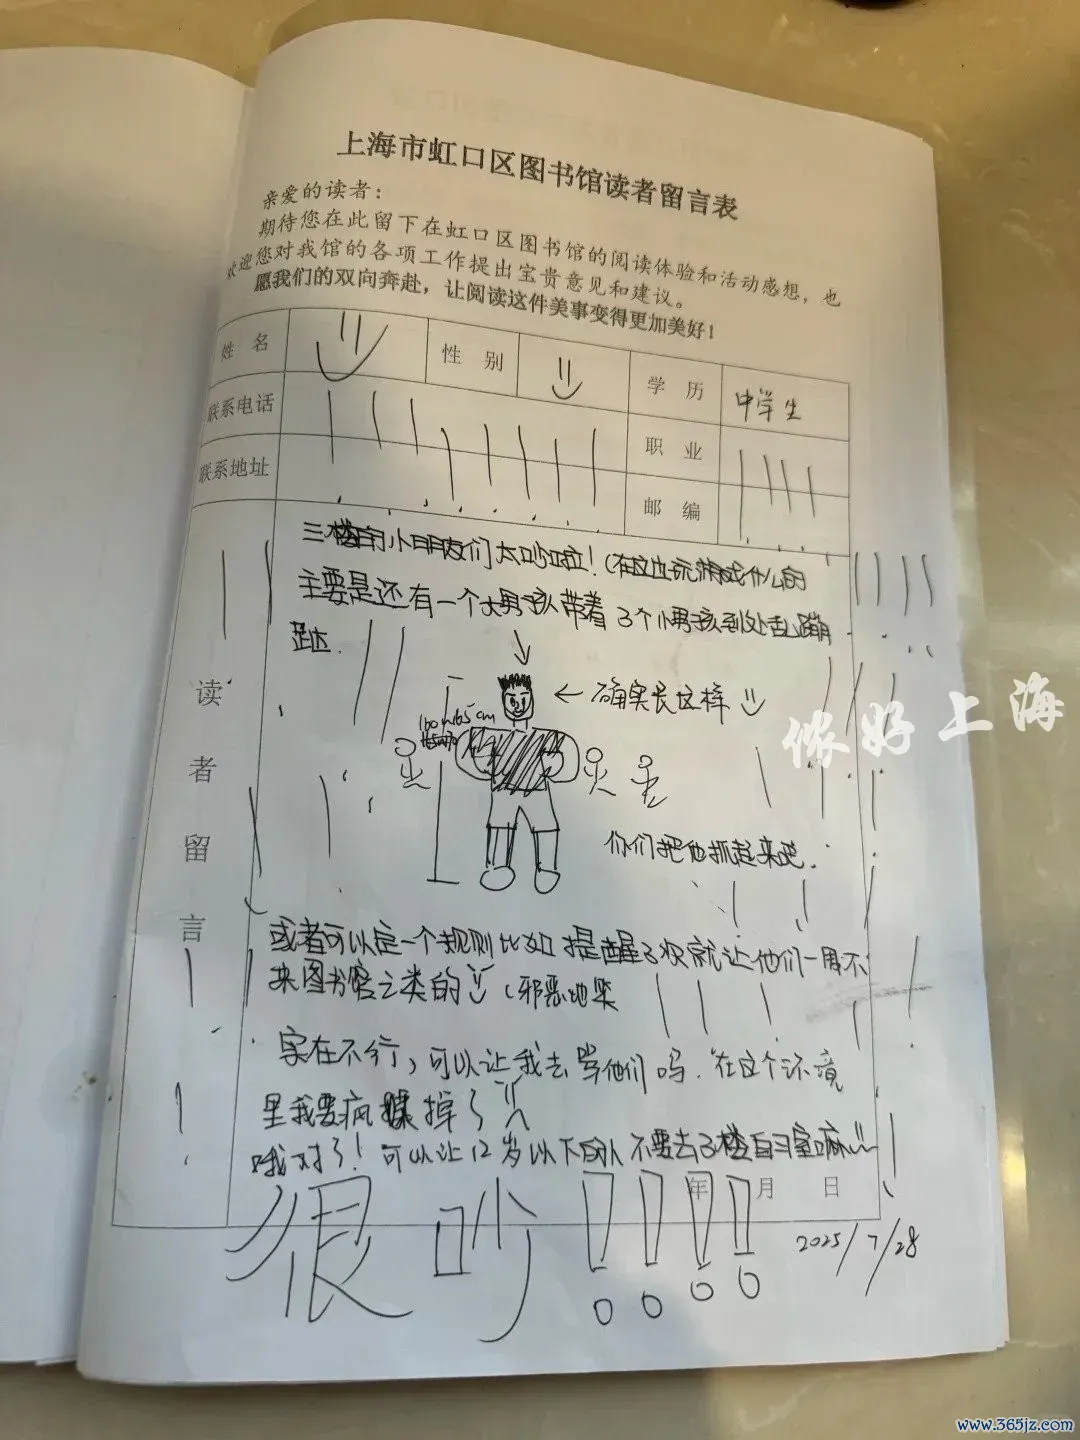 上海市虹口区图书馆读者留言表
亲爱的读者：
期待您在此留下在虹口区图书馆的阅读体验和活动感想，也
欢迎您对我馆的各项工作提出宝贵意见和建议。
愿我们的双向奔赴，让阅读这件美事变得更加美好！
姓 名 性 别 学 历 中学生
联系电话 职 业
联系地址 邮 编
读者留言
三楼的小朋友们太吵啦！（在这边玩游戏什么的
主要是还有一个大男孩带着3个小男孩到处乱蹦
跶.
← 确实长这样
160~165cm
你们把他抓起来吧.
或者可以定一个规则比如提醒3次就让他们一周不
来图书馆之类的 （邪恶地笑
实在不行，可以让我去骂他们吗. 在这个环境
里我要疯掉了
哦对了！可以让12岁以下的人不要去3楼自习室嘛
年 月 日
很吵！！！！
2025/7/28
侬好上海
www.365jz.com